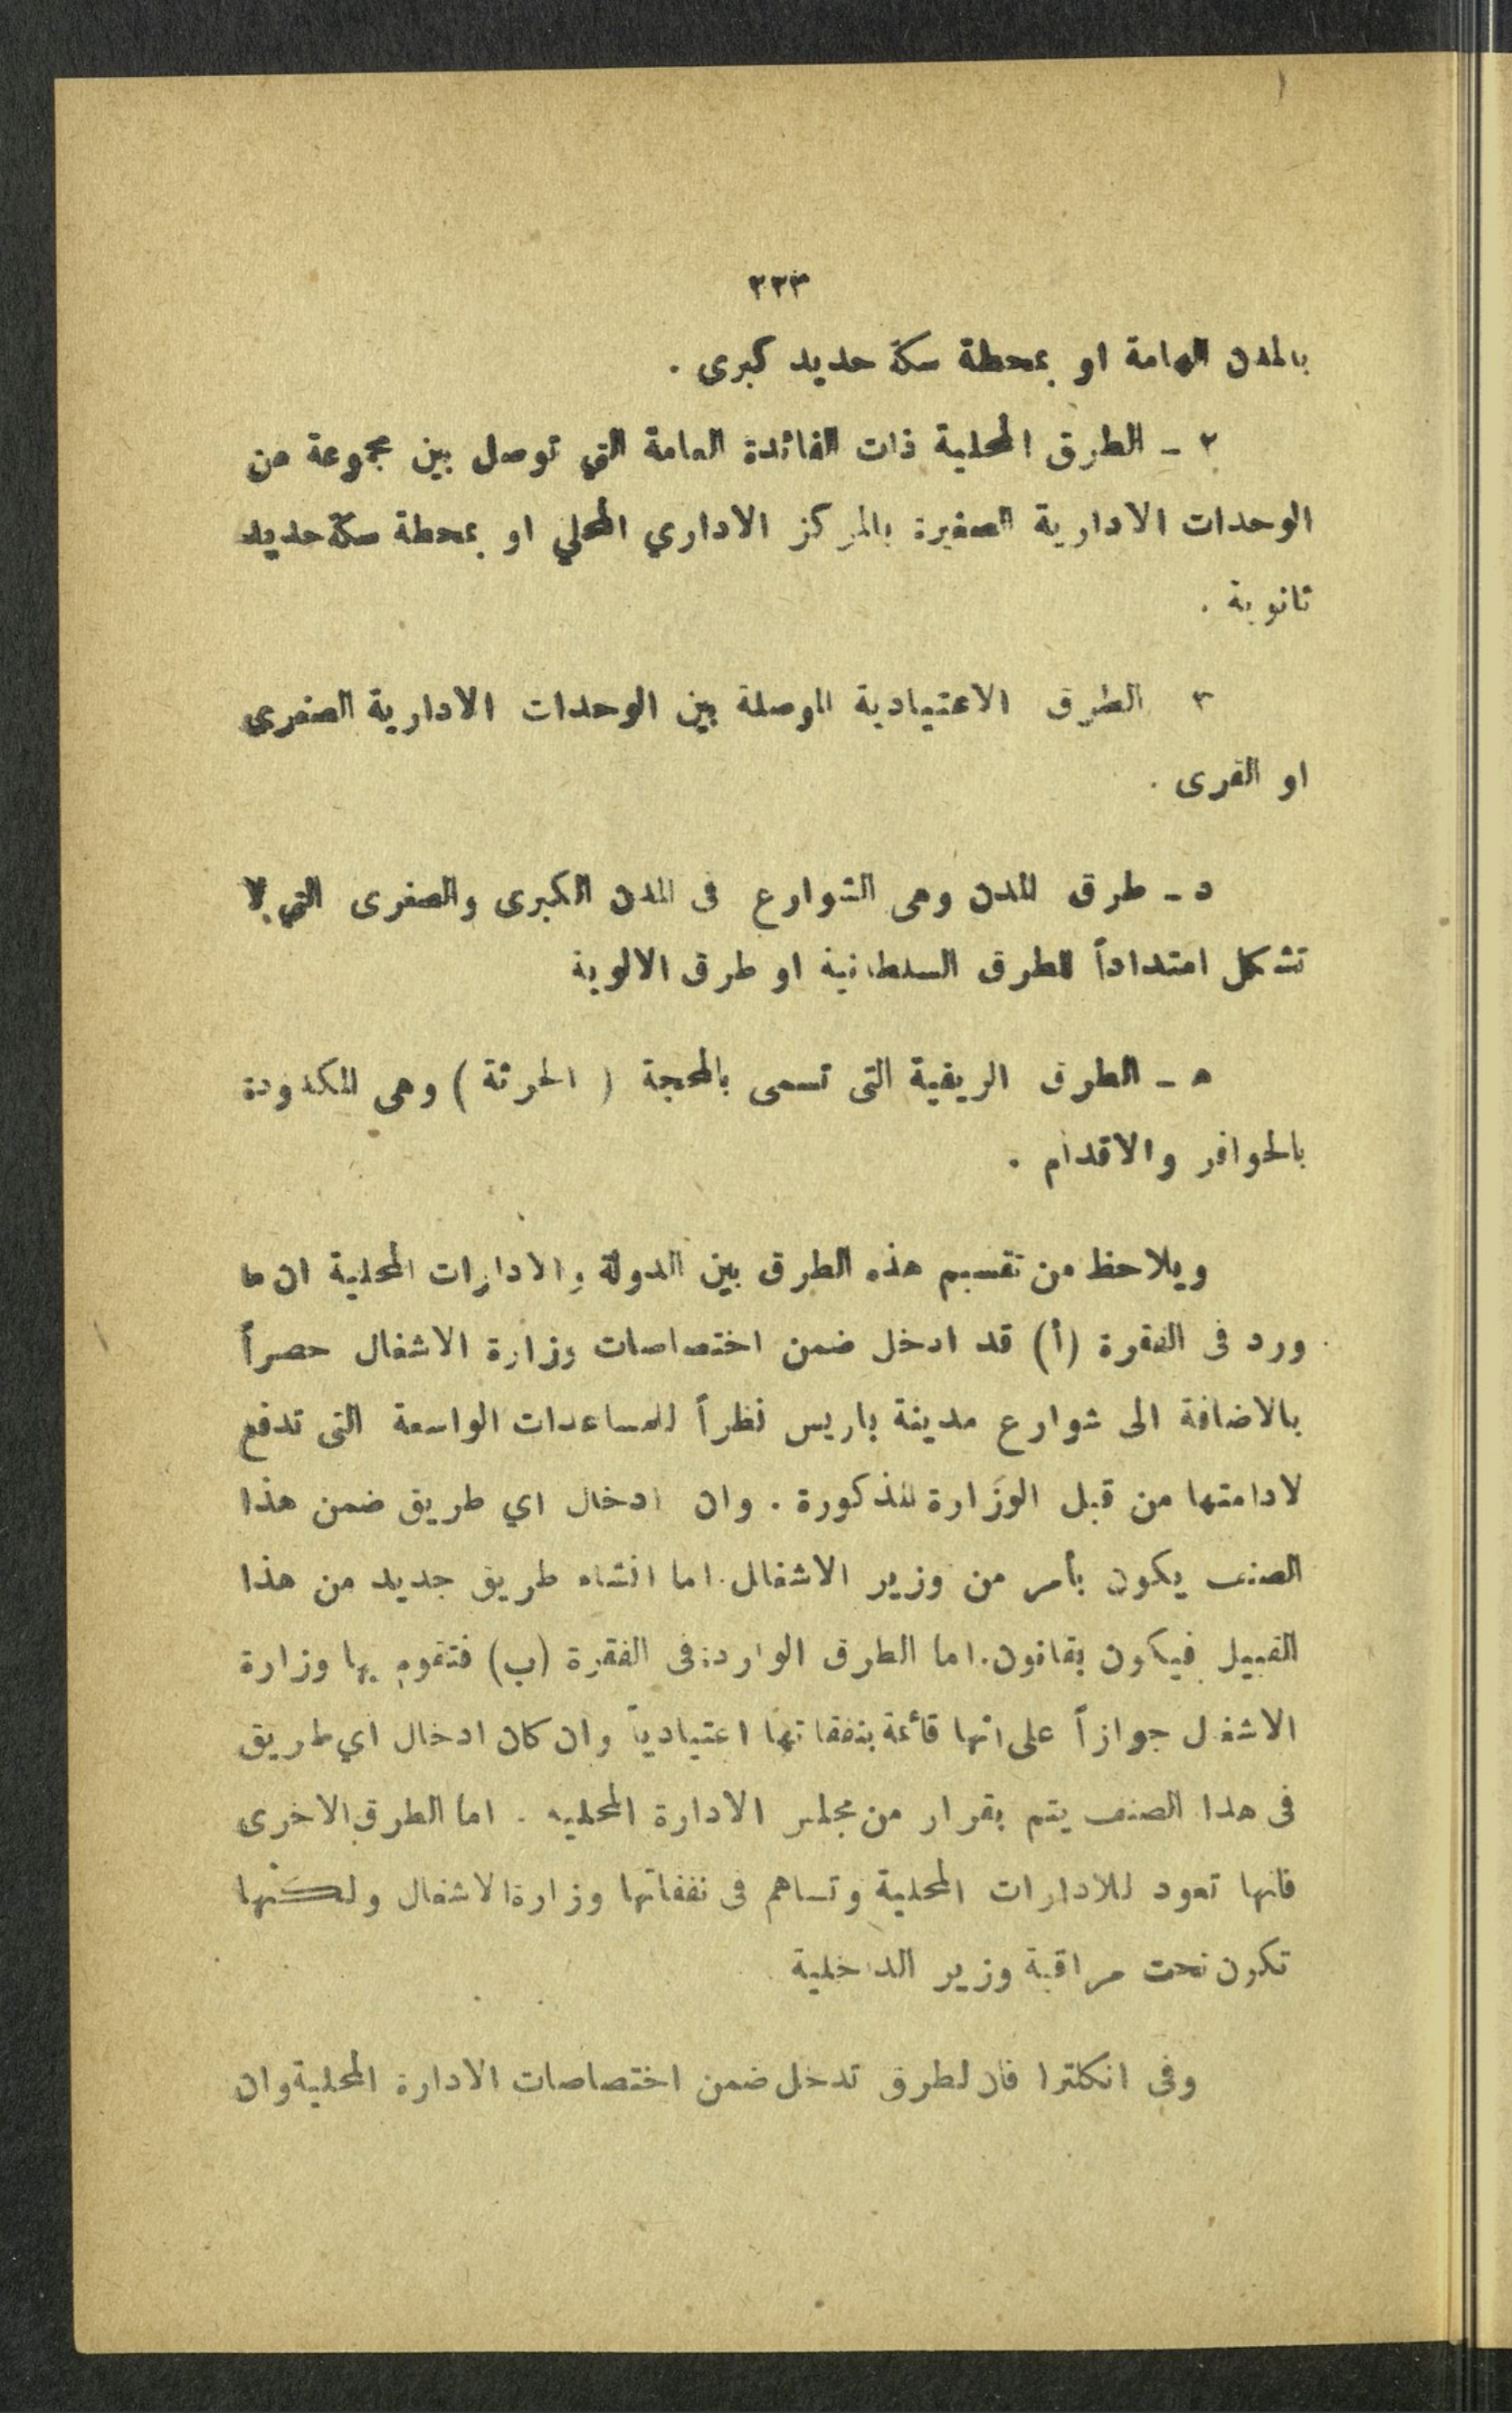 ٣٢٣
بالمدن الهامة او بمحطة سكة حديد كبرى .
٢ - الطرق المحلية ذات الفائدة العامة التي توصل بين مجموعة من
الوحدات الادارية الصغيرة بالمركز الاداري المحلي او بمحطة سكة حديد
ثانوية .
٣ الطرق الاعتيادية الموصلة بين الوحدات الادارية الصغرى
او القرى .
د - طرق المدن وهى الشوارع فى المدن الكبرى والصغرى التي لا
تشكل امتداداً للطرق السلطانية او طرق الالوية
ه - الطرق الريفية التى تسمى بالمحجة ( الحرثة ) وهى المكدودة
بالحوافر والاقدام .
ويلاحظ من تقسيم هذه الطرق بين الدولة والادارات المحلية ان ما
ورد فى الفقرة (أ) قد ادخل ضمن اختصاصات وزارة الاشغال حصراً
بالاضافة الى شوارع مدينة باريس نظراً للمساعدات الواسعة التى تدفع
لادامتها من قبل الوزارة المذكورة . وان ادخال اي طريق ضمن هذا
الصنف يكون بأمر من وزير الاشغال . اما انشاء طريق جديد من هذا
القبيل فيكون بقانون . اما الطرق الواردة فى الفقرة (ب) فتقوم بها وزارة
الاشغل جوازاً على انها قائمة بنفقاتها اعتيادياً وان كان ادخال اي طريق
فى هذا الصنف يتم بقرار من مجلس الادارة المحليه . اما الطرق الاخرى
فانها تعود للادارات المحلية وتساهم فى نفقاتها وزارة الاشغال ولكنها
تكون تحت مراقبة وزير الداخلية
وفى انكلترا فان لطرق تدخل ضمن اختصاصات الادارة المحلية وان